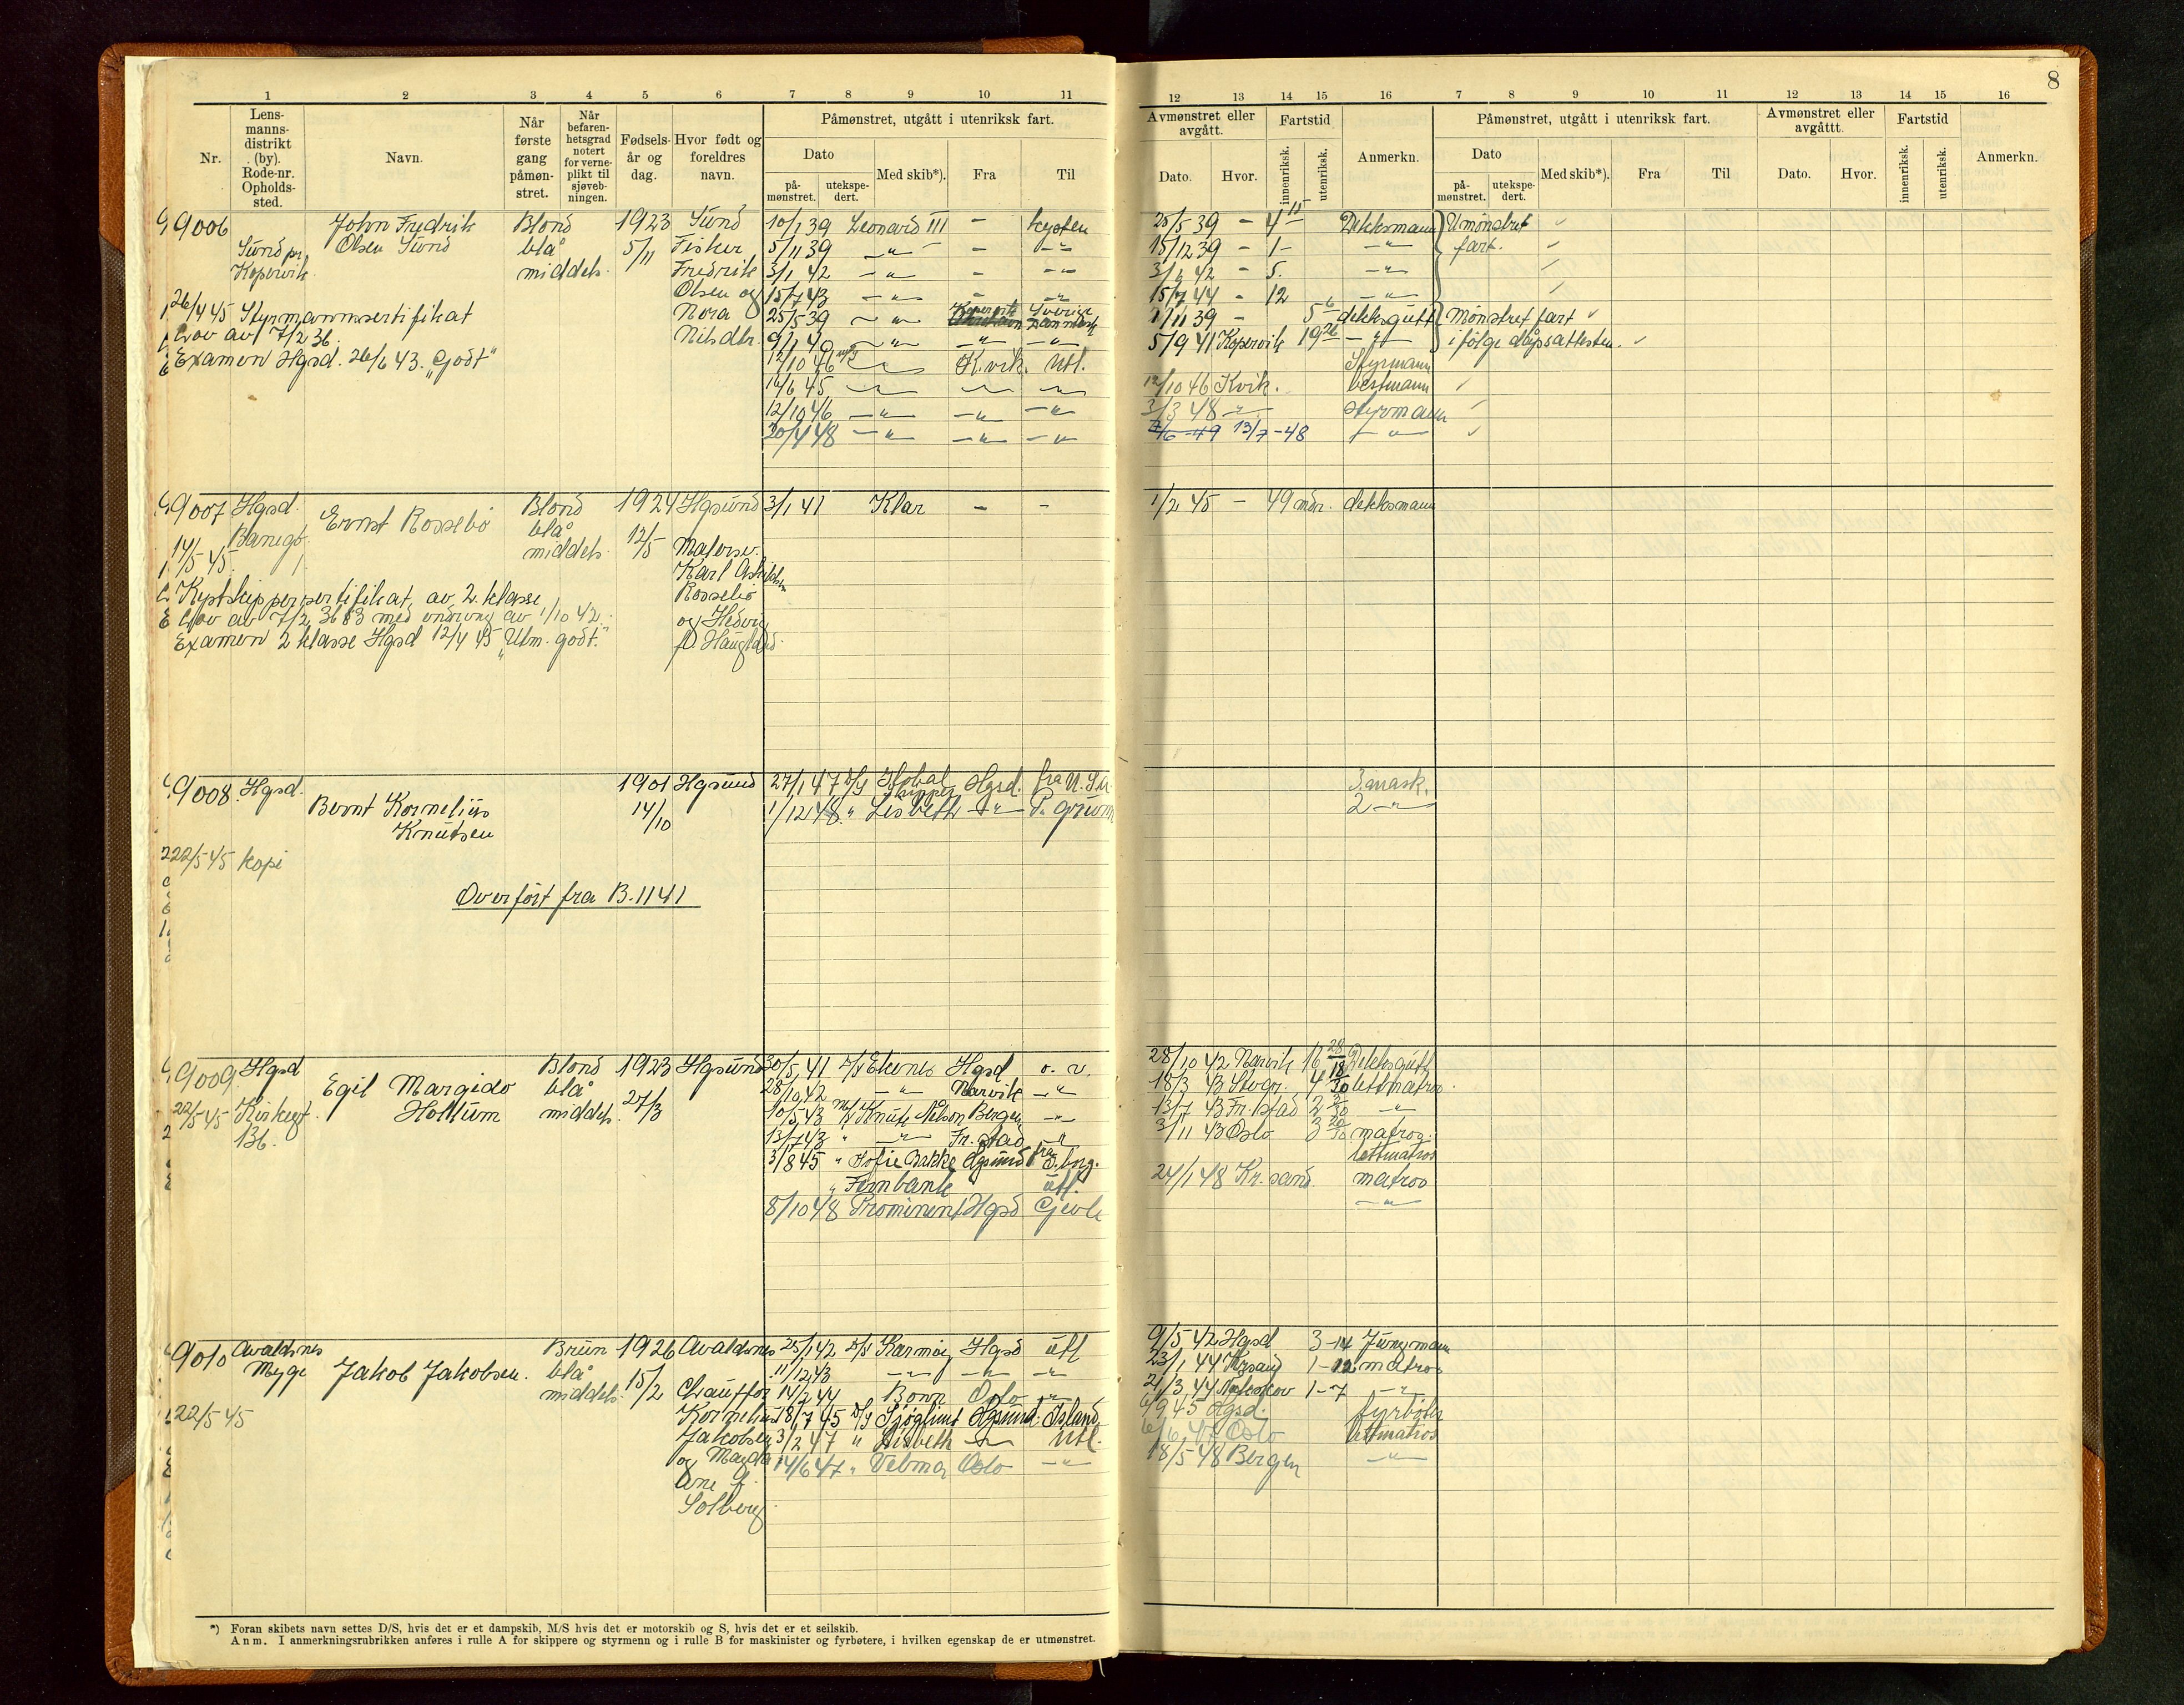 8
1 2 3 4 5 6 7 8 9 10 11
12 13 14 15 16 7 8 9 10 11 12 13 14 15 16
Nr.
Lens-
manns-
distrikt
(by).
Rode-nr.
Opholds-
sted.
Navn.
Når
første
gang
påmøn-
stret.
Når
befaren-
hetsgrad
notert
for verne-
plikt til
sjøveb-
ningen.
Fødsels-
år og
dag.
Hvor født og
foreldres
navn.
Påmønstret, utgått i utenriksk fart.
Dato
på-
mønstret.
utekspe-
dert.
Med skib*).
Fra
Til
Avmønstret eller
avgått.
Dato.
Hvor.
Fartstid
innenriksk.
utenriksk.
Anmerkn.
Påmønstret, utgått i utenriksk fart.
Dato
på-
mønstret.
utekspe-
dert.
Med skib*).
Fra
Til
Avmønstret eller
avgåttt.
Dato.
Hvor.
Fartstid
innenriksk.
utenriksk.
Anmerkn.
9006
Sund pr.
Kopervik.
John Fredrik
Olsen Sund
Blond
blå
middels.
1923
5/11
Sund
Fisker
Fredrik
Olsen og
Nora
Nilsdtr.
26/4 45 Styrmannssertifikat
Lov av 7/2 36.
Examen Hgsd. 26/6 43. „Godt"
10/1 39 Leonard III - kysten
5/11 39 -"- - -"-
3/1 42 -"- - -"-
15/7 43 -"- - -"-
25/5 39 -"- Kopervik Sverige
9/1 40 -"- -"- -"-
12/10 46 K.vik. Utl.
16/6 45 -"- -"- -"-
12/10 46 -"- -"- -"-
20/4 48 -"- -"- -"-
25/5 39 - 4 15 Dekksmann Umønstret
15/12 39 - 1- -"- fart.
3/6 42 - 5. -"-
15/7 44 - 12 -"-
1/11 39 - 5 6 dekksgutt Mønstret fart
5/9 41 Kopervik 19 26 -"- i følge dåpsattesten.
Styrmann
12/10 46 Kvik. bestmann
3/3 48 -"- styrmann
13/7 -48 -"-
9007 Hgsd.
Banegt.
14/5 45.
Ernst Rossebø
Blond
blå
middels.
1924
12/5
Hgsund
Malersv.
Karl
Rossebø
og Hedvig
f. Haugland.
3/1 41 Klar - -
1/2 45 - 49 mdr. dekksmann
Kystskippersertifikat av 2. klasse
Lov av 7/2 36 § 3 med endring av 1/10 42.
Examen 2 klasse Hgsd 12/4 45 „Utm. godt."
9008. Hgsd.
Bernt Kornelius
Knutsen
1901
14/10
Hgsund
22/5 45 kopi
Overført fra B. 1141
27/1 47 D/S Hobal Hgsd. fra U.S.A.
1/12 48. " Lisbeth -"-
3. mask.
2 -"-
9009. Hgsd
22/5 45 Kirkegt.
136.
Egil Margido
Hottum
Blond
blå
middels.
1923
27/3
Hgsund
30/5 41 D/S Elvenes Hgsd o. v.
28/10 42 -"- Narvik -"-
10/5 43 M/S Knute Nelson Bergen -"-
13/7 43 " -"- Fr. stad -"-
3/8 45 " Sofie Bakke Hgsund
" Fernbank utl.
8/10 48 Prominent Hgsd Gjevle
28/10 42 Narvik 16 28 Dekksgutt
18/3 43 Stvgr. 4 lettmatros.
13/7 43 Fr. stad 2 -"-
3/11 43 Oslo 3 matros.
lettmatros
24/1 48 Kr. sand matros
-"-
9010 Avaldsnes
Mygge
22/5 45
Jakob Jakobsen.
Brun
blå
middels.
1926
15/2
Avaldsnes
Chauffør
Kornelius
Jakobsen
og Magda
Ane f.
Solberg
25/1 42 D/S Karmøy Hgsd utl
11/12 43 -"- -"- -"-
14/2 44 Bonn Oslo -"-
18/7 45 D/S Sjøglimt Hgsund. Island.
3/2 47 " Lisbeth -"- Utl.
14/6 47 " Velma Oslo -"-
9/5 42 Hgsd 3-14 Jungmann
23/1 44 Krsand 1-12 matros
21/3 44 1-7 -"-
6/9 45 Hgsd. fyrbøter
6/6 47 Oslo lettmatros
18/5 48 Bergen -"-
*) Foran skibets navn settes D/S, hvis det er et dampskib, M/S hvis det er motorskib og S, hvis det er et seilskib.
Anm. I anmerkningsrubrikken anføres i rulle A for skippere og styrmenn og i rulle B for maskinister og fyrbøtere, i hvilken egenskap de er utmønstret.